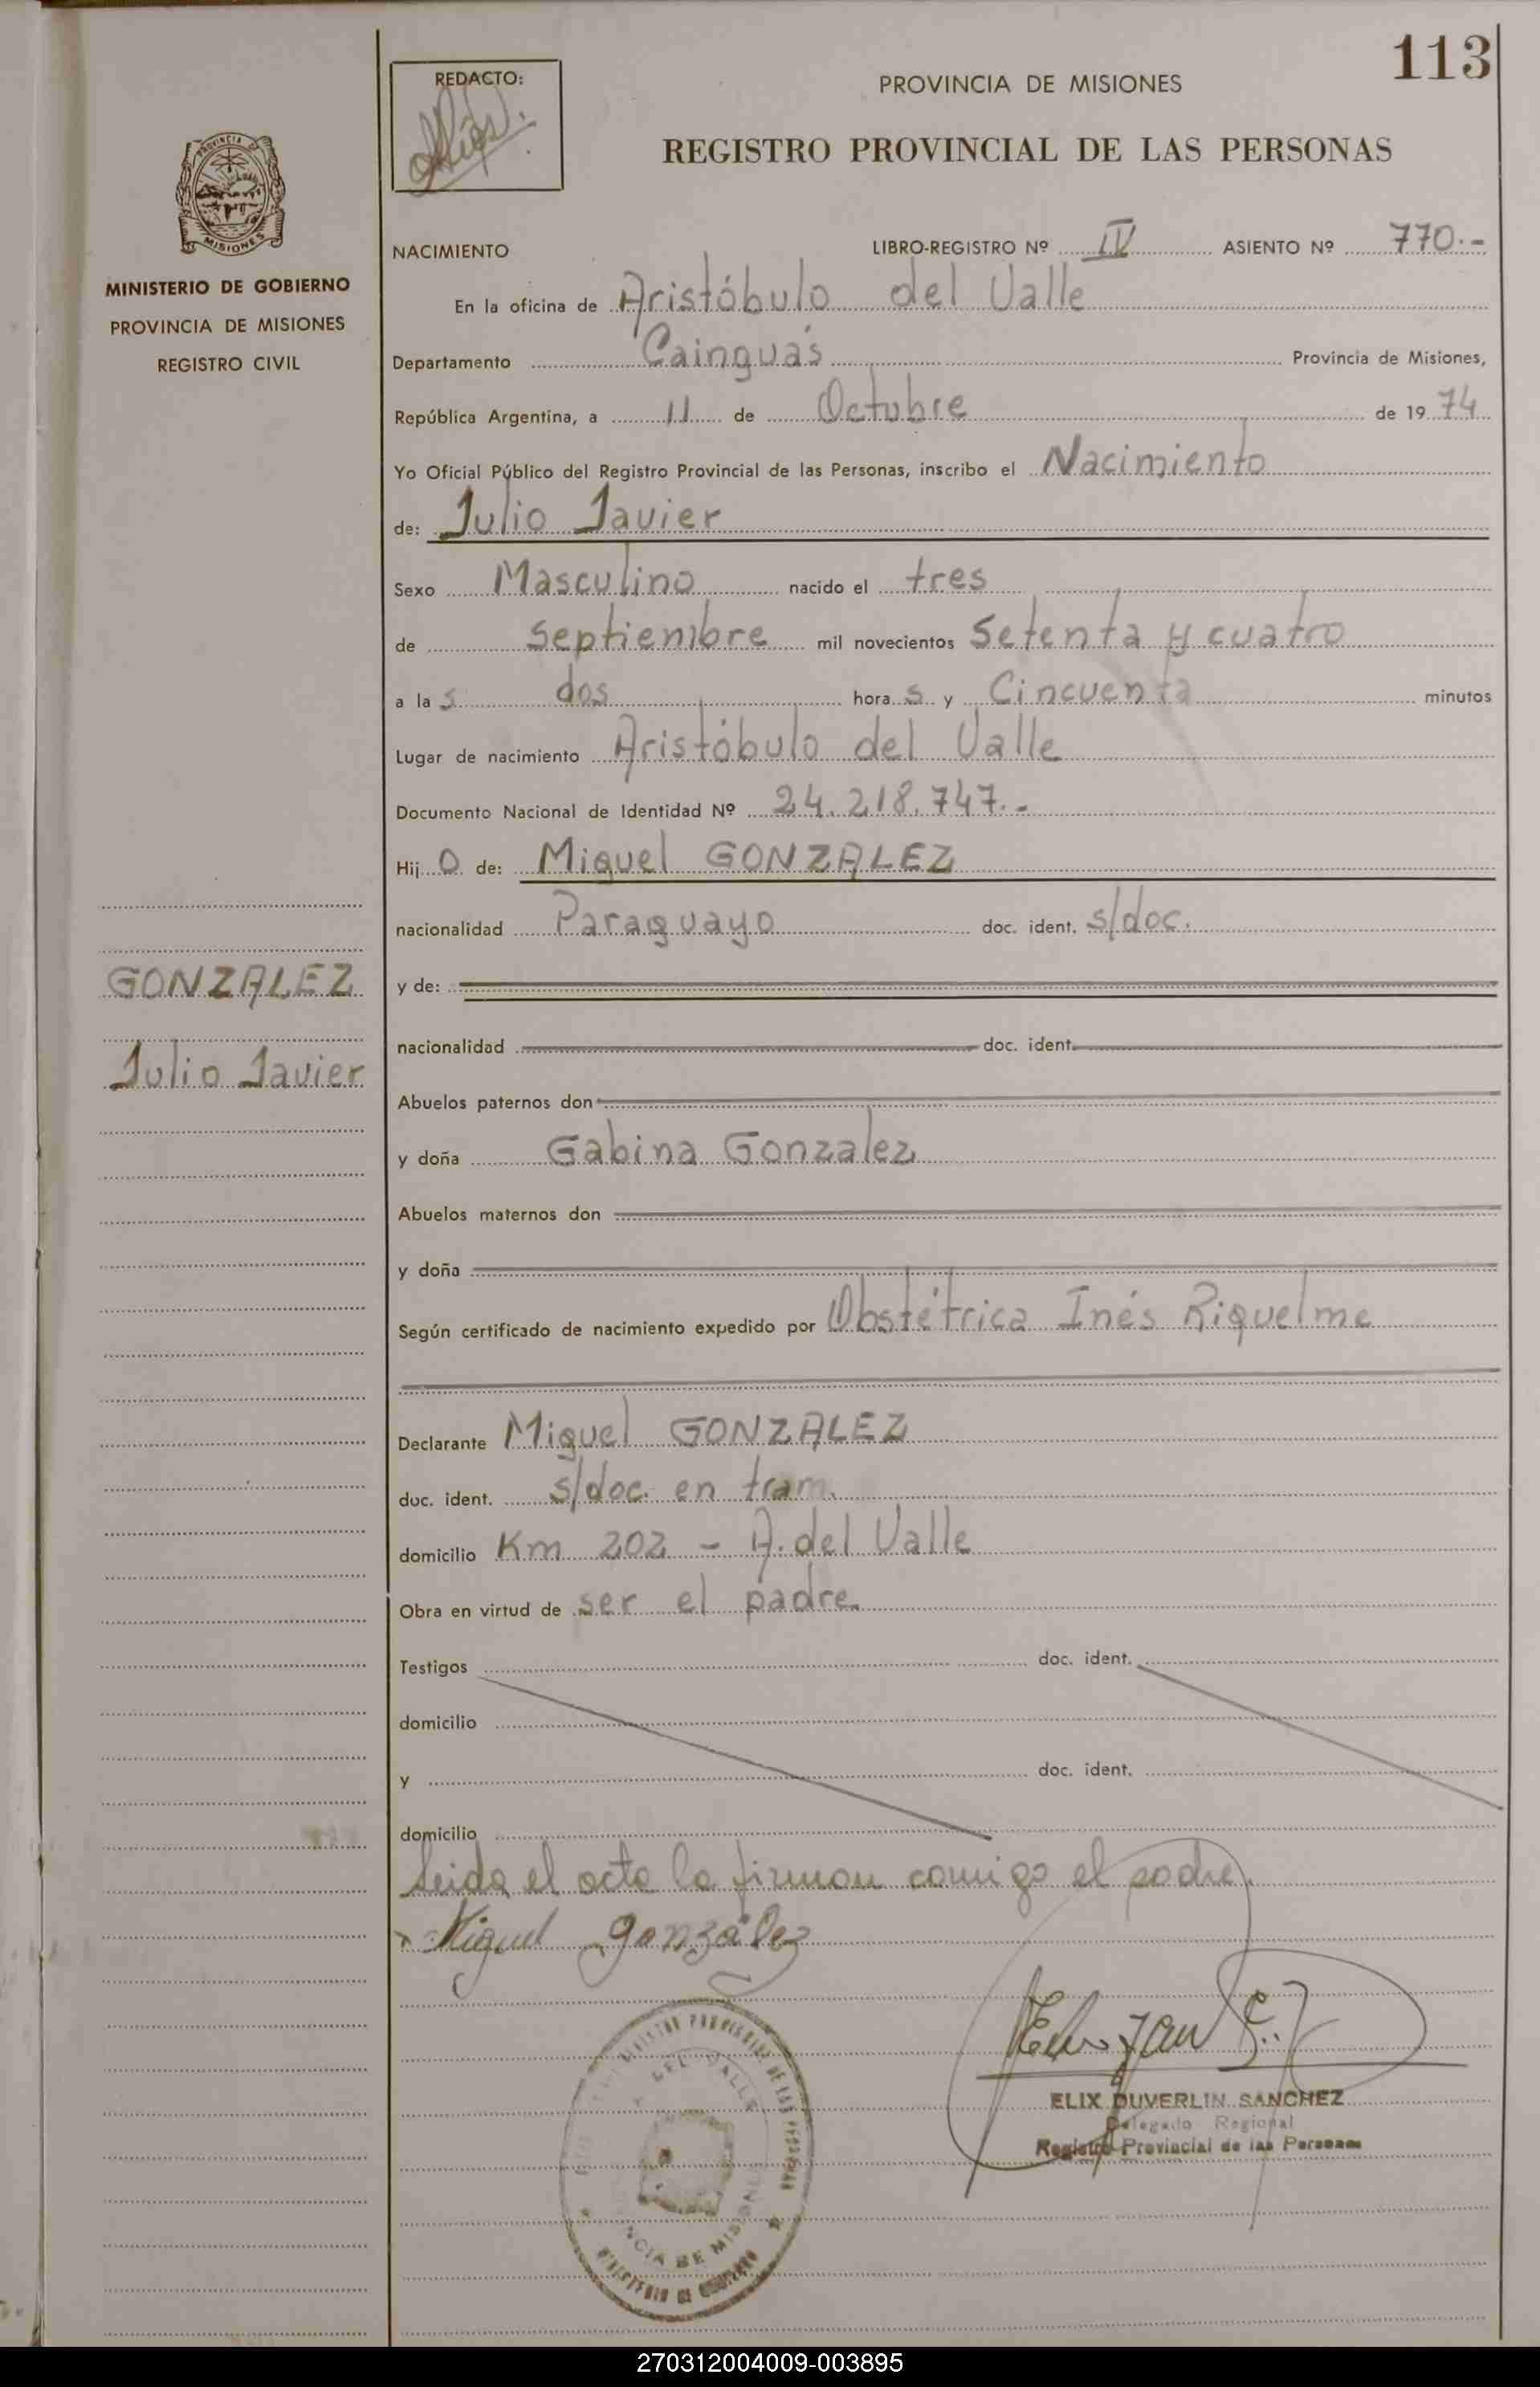 113
REDACTO:
PROVINCIA DE MISIONES
REGISTRO PROVINCIAL DE LAS PERSONAS
PROVINCIA DE
MISIONES
MINISTERIO DE GOBIERNO
PROVINCIA DE MISIONES
REGISTRO CIVIL
NACIMIENTO LIBRO-REGISTRO Nº IV ASIENTO Nº 770.-
En la oficina de Aristóbulo del Valle
Departamento Cainguás Provincia de Misiones,
República Argentina, a 11 de Octubre de 19 74
Yo Oficial Público del Registro Provincial de las Personas, inscribo el Nacimiento
de: Julio Javier
Sexo Masculino nacido el tres
de septiembre mil novecientos Setenta y cuatro
a la s dos hora s y Cincuenta minutos
Lugar de nacimiento Aristóbulo del Valle
Documento Nacional de Identidad Nº 24.218.747.-
Hij o de: Miguel GONZALEZ
nacionalidad Paraguayo doc. ident. s/doc.
GONZALEZ
y de:
nacionalidad doc. ident.
Julio Javier
Abuelos paternos don
y doña Gabina Gonzalez
Abuelos maternos don
y doña
Según certificado de nacimiento expedido por Obstétrica Inés Riquelme
Declarante Miguel GONZALEZ
doc. ident. s/doc. en tram.
domicilio Km 202 - A. del Valle
Obra en virtud de ser el padre.
Testigos doc. ident.
domicilio
y doc. ident.
domicilio
Leida el acta la firman comigo el padre.
Miguel González
ELIX DUVERLIN SANCHEZ
Delegado Regional
Registro Provincial de las Personas
REGISTRO PROVINCIAL DE LAS PERSONAS
A. DEL VALLE
MINISTERIO DE GOBIERNO
270312004009-003895